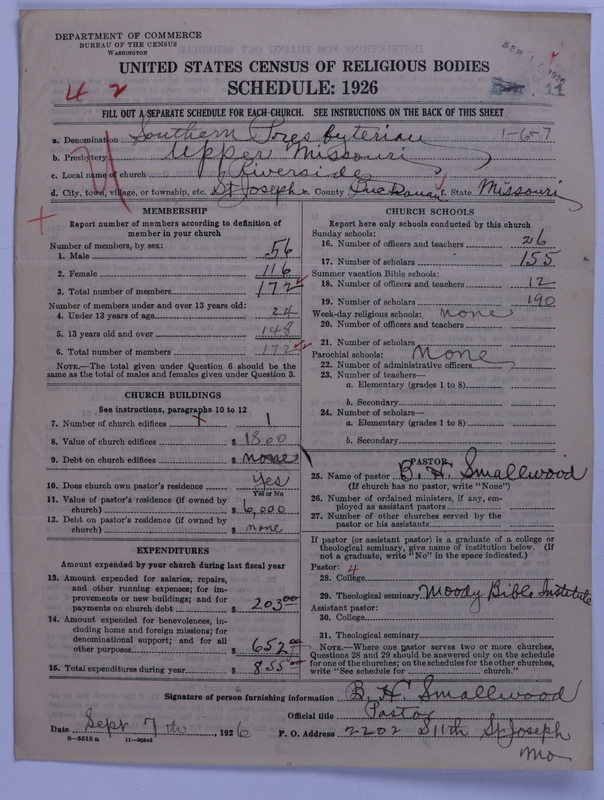 DEPARTMENT OF COMMERCE
BUREAU OF THE CENSUS
WASHINGTON
UNITED STATES CENSUS OF RELIGIOUS BODIES
SCHEDULE: 1926
4 2
11
FILL OUT A SEPARATE SCHEDULE FOR EACH CHURCH. SEE INSTRUCTIONS ON THE BACK OF THIS SHEET
a. Denomination Southern Presbyterian 1-6-7
b. Presbytery Upper Missouri
c. Local name of church Riverside
d. City, town, village, or township, etc. St Joseph e. County Buchanan f. State Missouri
MEMBERSHIP
Report number of members according to definition of member in your church
Number of members, by sex:
1. Male 56
2. Female 116
3. Total number of members 172
Number of members under and over 13 years old:
4. Under 13 years of age 24
5. 13 years old and over 148
6. Total number of members 172
NOTE.—The total given under Question 6 should be the same as the total of males and females given under Question 3.
CHURCH BUILDINGS
See instructions, paragraphs 10 to 12
7. Number of church edifices 1
8. Value of church edifices $ 1800
9. Debt on church edifices $ none
10. Does church own pastor's residence Yes
Yes or No
11. Value of pastor's residence (if owned by
church) $ 6,000
12. Debt on pastor's residence (if owned by
church) $ none
EXPENDITURES
Amount expended by your church during last fiscal year
13. Amount expended for salaries, repairs,
and other running expenses; for im-
provements or new buildings; and for
payments on church debt $ 203.00
14. Amount expended for benevolences, in-
cluding home and foreign missions; for
denominational support; and for all
other purposes $ 652.00
15. Total expenditures during year $ 855.00
CHURCH SCHOOLS
Report here only schools conducted by this church
Sunday schools:
16. Number of officers and teachers 26
17. Number of scholars 155
Summer vacation Bible schools:
18. Number of officers and teachers 12
19. Number of scholars 190
Week-day religious schools: none
20. Number of officers and teachers
21. Number of scholars
Parochial schools: none
22. Number of administrative officers
23. Number of teachers—
a. Elementary (grades 1 to 8)
b. Secondary
24. Number of scholars—
a. Elementary (grades 1 to 8)
b. Secondary
PASTOR
25. Name of pastor B. H. Smallwood
(If church has no pastor, write "None")
26. Number of ordained ministers, if any, em-
ployed as assistant pastors
27. Number of other churches served by the
pastor or his assistants
If pastor (or assistant pastor) is a graduate of a college or
theological seminary, give name of institution below. (If
not a graduate, write "No" in the space indicated.)
Pastor: 4
28. College
29. Theological seminary Moody Bible Institute
Assistant pastor:
30. College
31. Theological seminary
NOTE.—Where one pastor serves two or more churches,
Questions 28 and 29 should be answered only on the schedule
for one of the churches; on the schedules for the other churches,
write "See schedule for church."
Signature of person furnishing information B. H. Smallwood
Official title Pastor
Date Sept 7th, 1926 P. O. Address 2202 S 11th St Joseph
Mo
8-5518a 11-